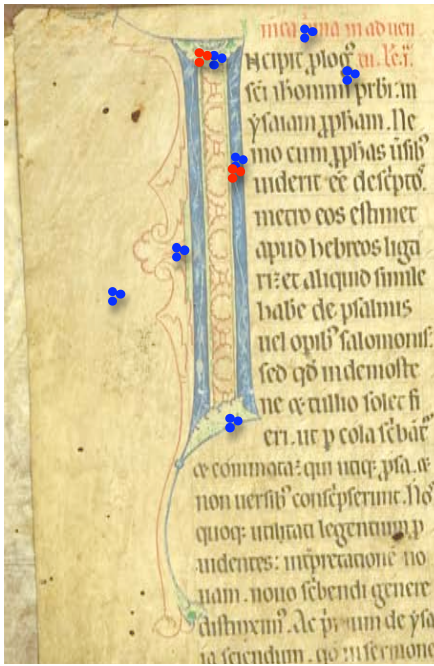 in adven
Incipit ꝓlog᷒
sc̄i ihonimi prbi: in
ysaiam ꝓpham. Ne
mo cum ꝓphas ūsib᷒
uiderit eē descͥptos.
metro eos estimet
apud hebreos liga
ri: et aliquid simile
habe de psalmis
uel opib᷒ salomonis:
sed qd̄ in demoste
ne ⁊ tullio solet fi
eri. ut p cola sc̄bāt᷒
⁊ commata: qui utiq; ꝓsa. ⁊
non uersib᷒ consc̄pserunt. No᷒
quoq; utilitati legentium ꝓ
uidentes: int̄pretationē no
uam. nouo sc̄bendi genere
distinxim᷒. Ac de ysa
ia sciendum. qd in sermone